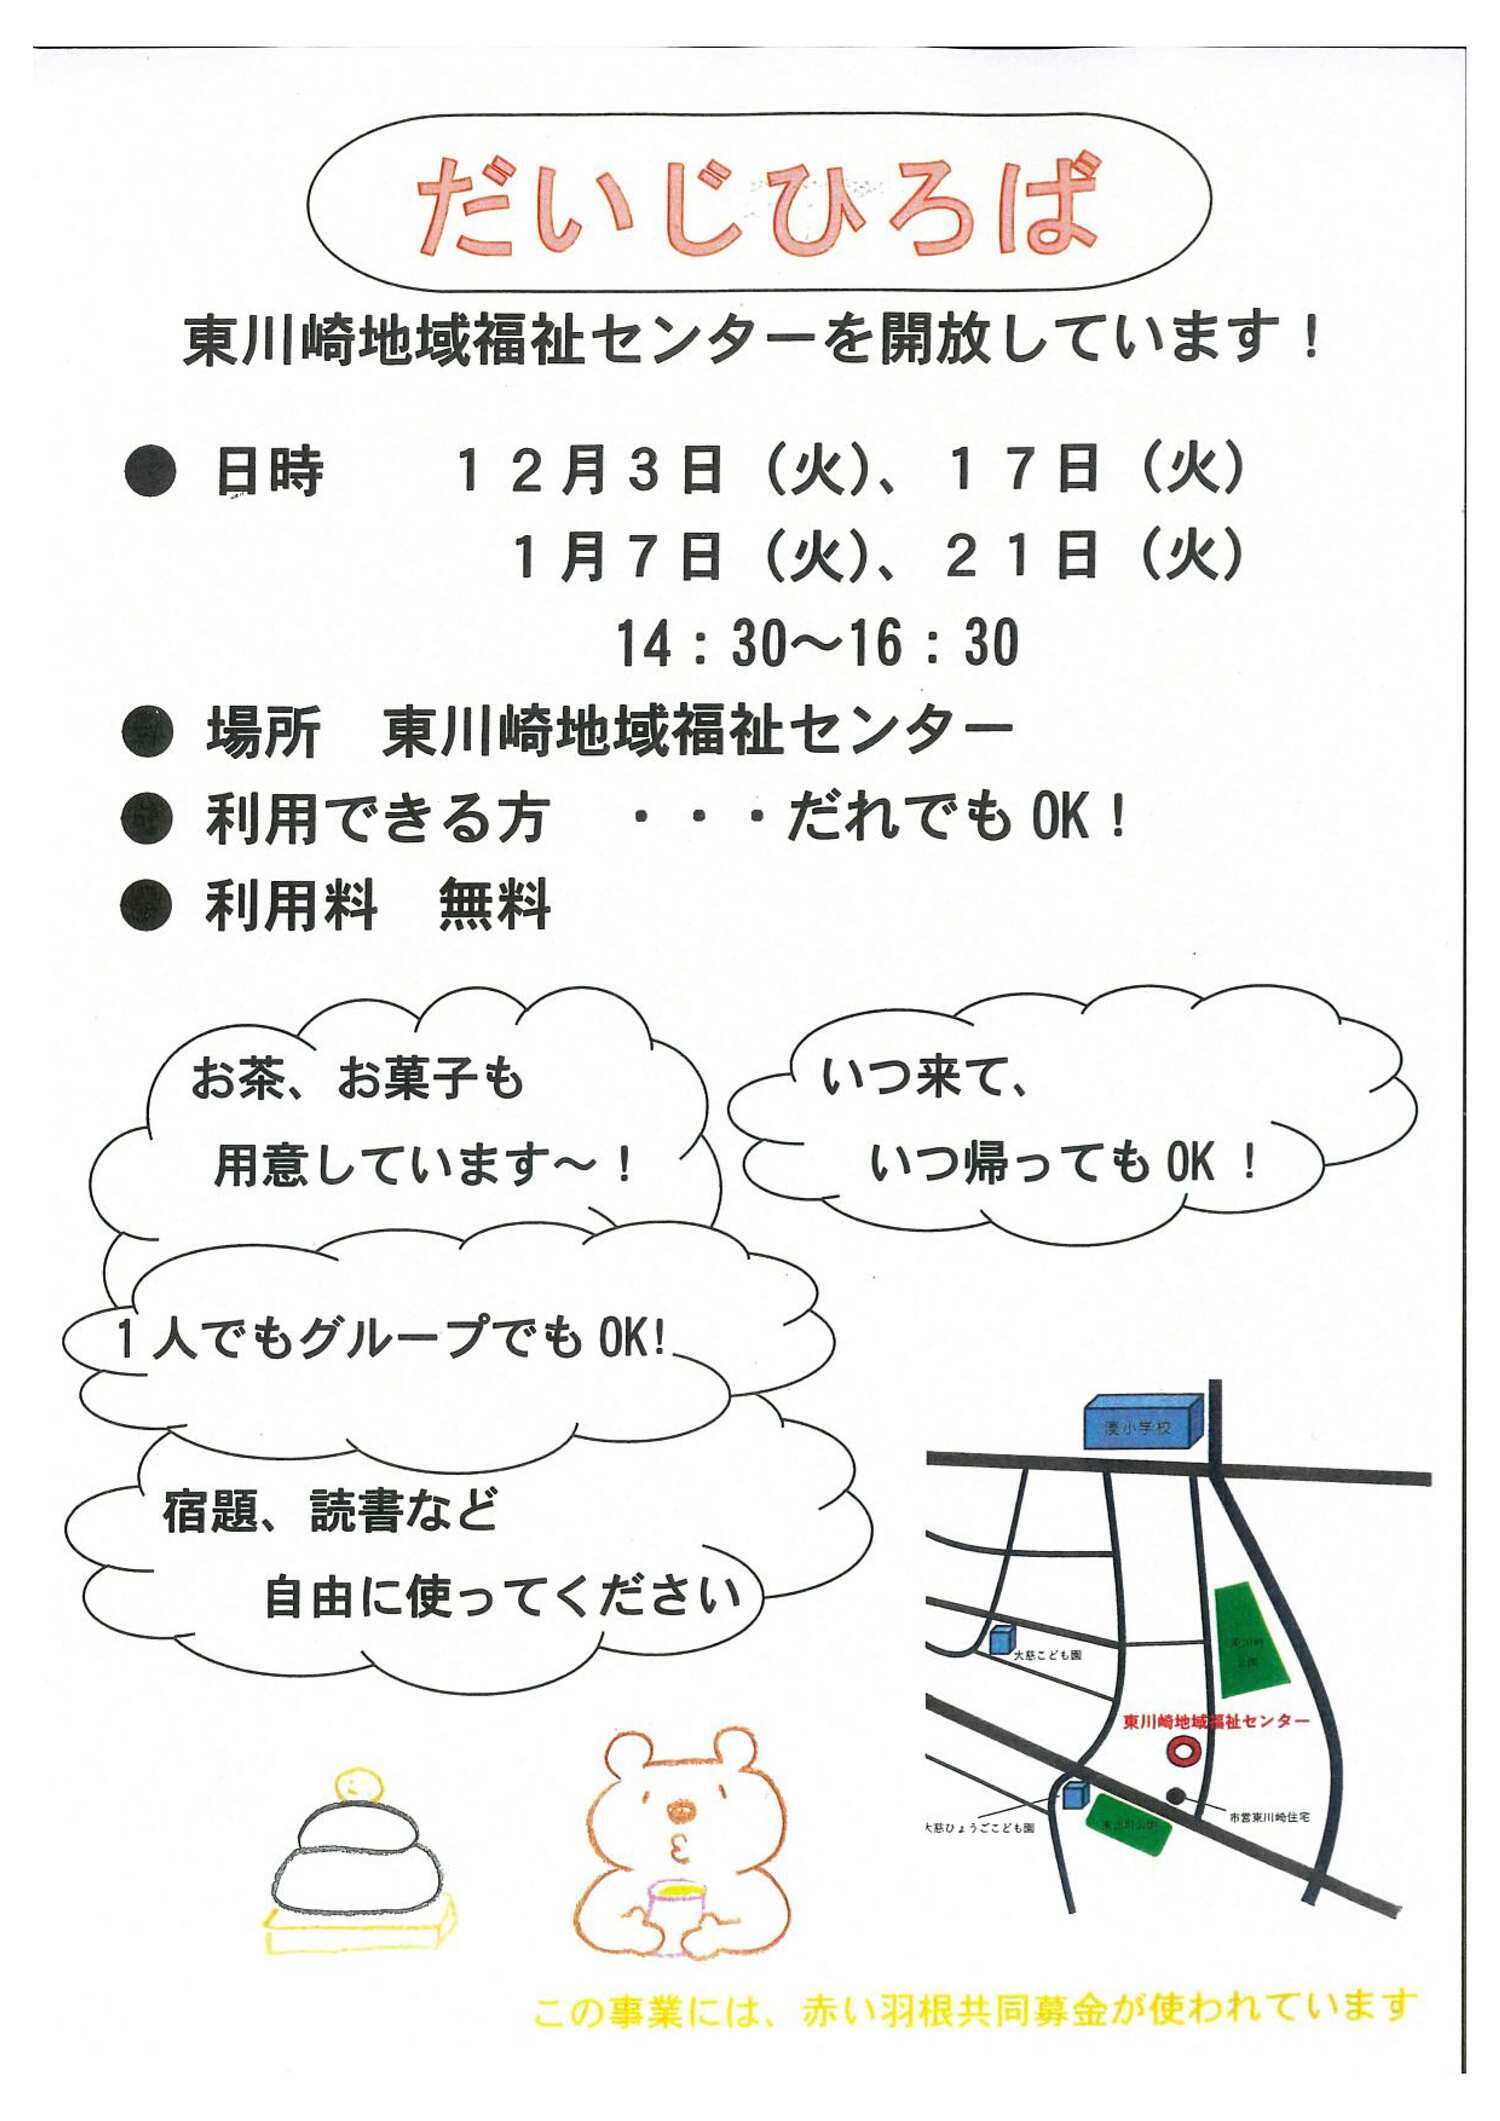 だいじひろば
東川崎地域福祉センターを開放しています！
● 日時　１２月３日（火）、１７日（火）
１月７日（火）、２１日（火）
14：30～16：30
● 場所　東川崎地域福祉センター
● 利用できる方　・・・だれでもOK！
● 利用料　無料
お茶、お菓子も
用意しています～！
いつ来て、
いつ帰ってもOK！
1人でもグループでもOK!
宿題、読書など
自由に使ってください
湊小学校
東川崎
公園
大慈こども園
東川崎地域福祉センター
市営東川崎住宅
大慈ひょうごこども園
この事業には、赤い羽根共同募金が使われています